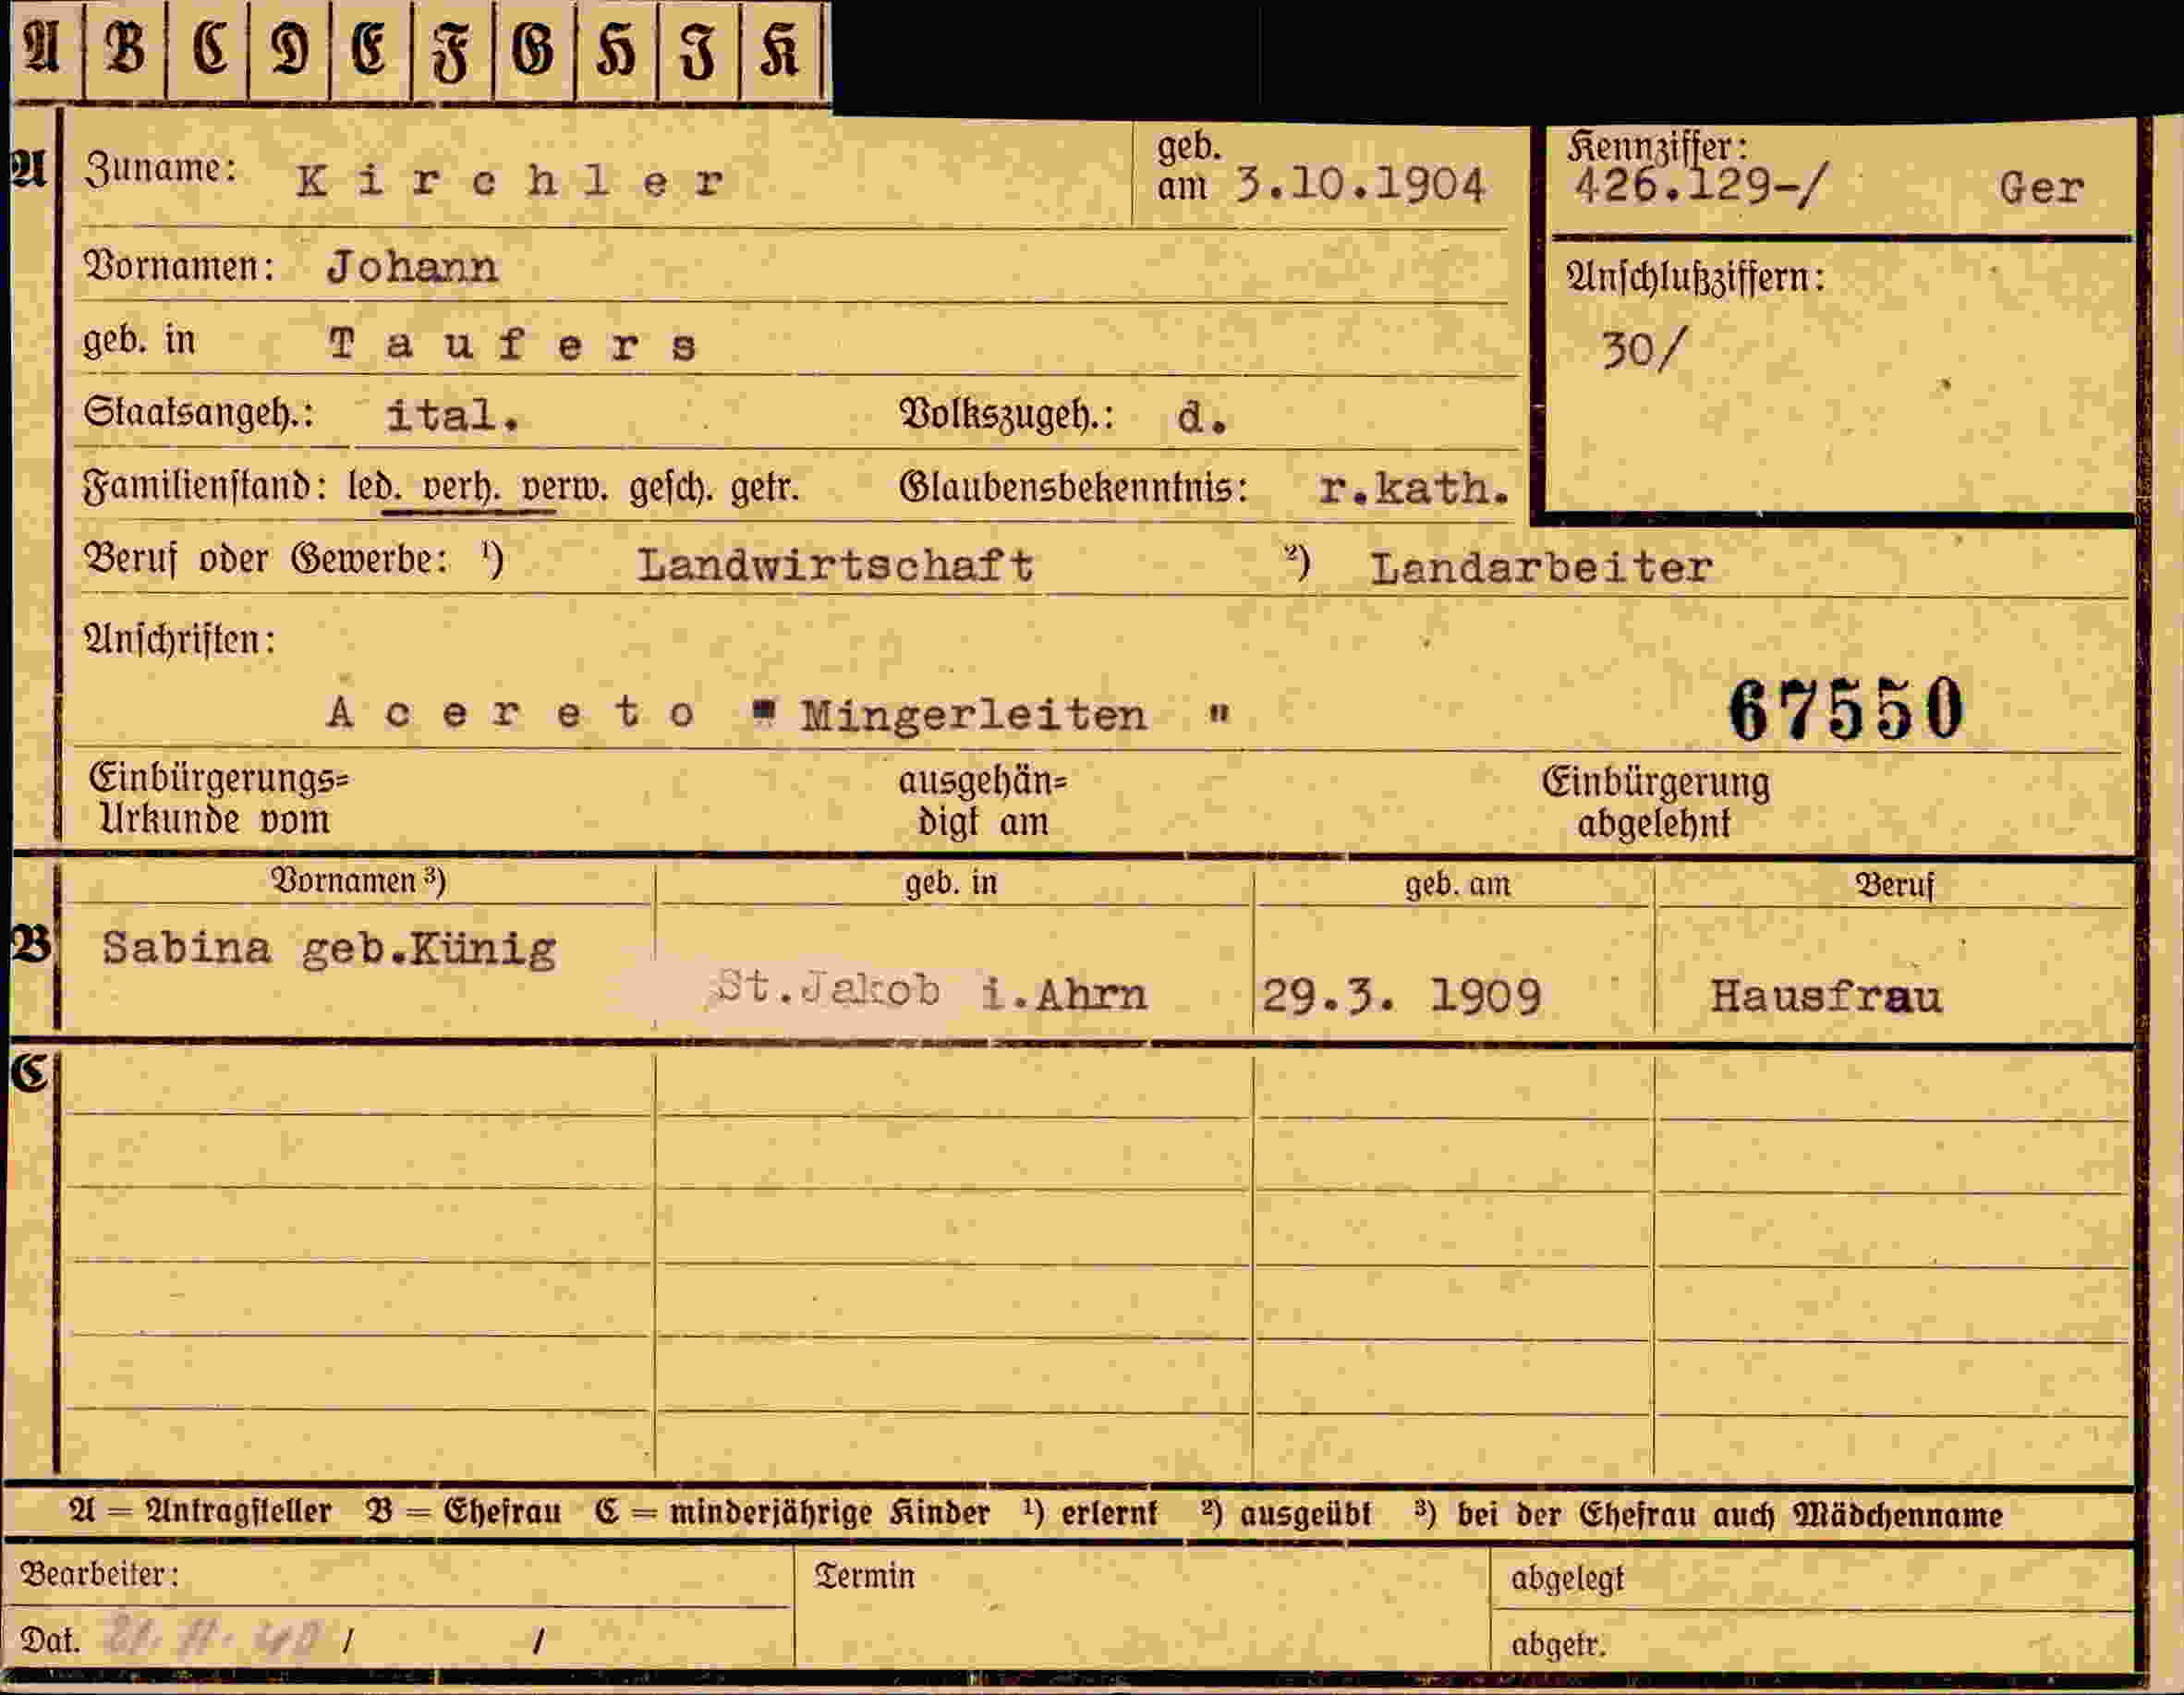 A B C D E F G H I K
A Zuname: Kirchler geb. am 3.10.1904 Kennziffer: 426.129-/ Ger
Vornamen: Johann Anschlußziffern:
geb. in Taufers 30/
Staatsangeh.: ital. Volkszugeh.: d.
Familienstand: led. verh. verw. gesch. getr. Glaubensbekenntnis: r.kath.
Beruf oder Gewerbe: ¹) Landwirtschaft ²) Landarbeiter
Anschriften:
Acereto " Mingerleiten " 67550
Einbürgerungs= ausgehän= Einbürgerung
Urkunde vom digt am abgelehnt
Vornamen ³) geb. in geb. am Beruf
B Sabina geb.Künig
St.Jakob i.Ahrn 29.3. 1909 Hausfrau
C
A = Antragsteller B = Ehefrau C = minderjährige Kinder ¹) erlernt ²) ausgeübt ³) bei der Ehefrau auch Mädchenname
Bearbeiter: Termin abgelegt
Dat. 21. 11. 40 / / abgetr.